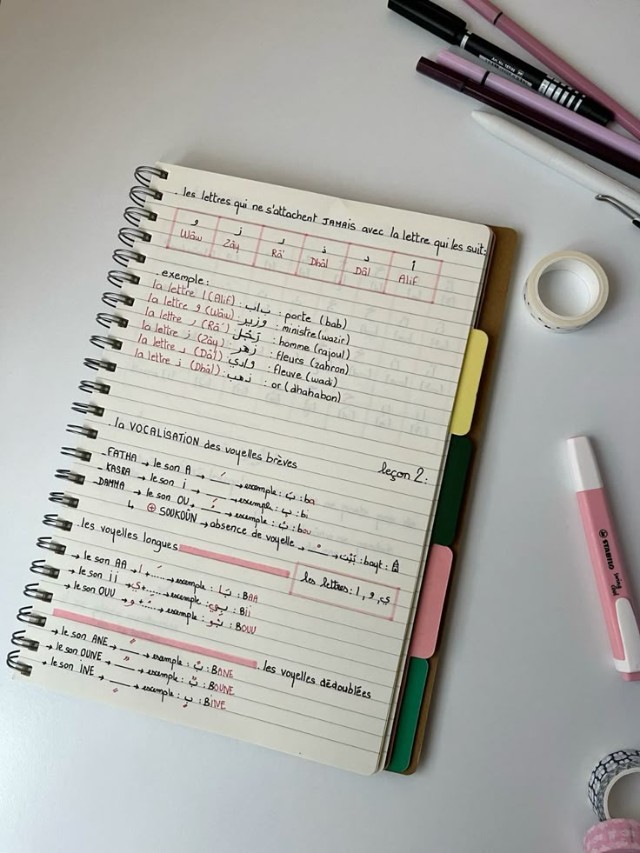 . les lettres qui ne s'attachent JAMAIS avec la lettre qui les suit:
و ز ر ذ د أ
Wâw Zây Râ' Dhâl Dâl Alif
. exemple:
la lettre ا (Alif) : باب : porte (bab)
la lettre و (Wâw) : وزير : ministre (wazir)
la lettre ر (Râ') : رَجُل : homme (rajoul)
la lettre ز (Zây) : زهر : fleurs (zahron)
la lettre د (Dâl) : وادي : fleuve (wadi)
la lettre ذ (Dhâl) : ذهب : or (dhahabon)
leçon 2:
. la VOCALISATION des voyelles brèves
FATHA → le son A → َ → exemple : بَ : ba
KASRA → le son i → ِ → exemple : بِ : bi
DAMMA → le son OU → ُ → exemple : بُ : bou
↳ ⊕ SOUKOÛN → absence de voyelle → ْ : بَيْت : bayt :
. les voyelles longues
les lettres : ا , و , ي
→ le son AA → ا → exemple : بَا : BAA
→ le son ii → ي → exemple : بِي : Bii
→ le son OUU → و → exemple : بُو : BOUU
. les voyelles dédoublées
→ le son ANE → ً → exemple : بً : BANE
→ le son OUNE → ٌ → exemple : بٌ : BOUNE
→ le son iNE → ٍ → exemple : بٍ : BiNE
STABILO
swing cool